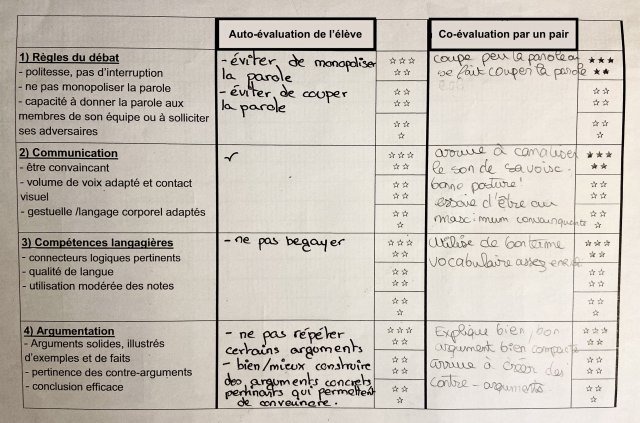 Auto-évaluation de l'élève
Co-évaluation par un pair
1) Règles du débat
- politesse, pas d'interruption
- ne pas monopoliser la parole
- capacité à donner la parole aux
membres de son équipe ou à solliciter
ses adversaires
- éviter de monopoliser
la parole
- éviter de couper
la parole
☆☆☆
☆☆
☆☆
☆☆
☆☆
☆
coupe peu la parole ou
se fait couper la parole
★★★
★★
☆☆
☆☆
☆☆
☆
2) Communication
- être convaincant
- volume de voix adapté et contact
visuel
- gestuelle /langage corporel adaptés
✓
☆☆☆
☆☆
☆☆
☆☆
☆☆
☆
arrive à canaliser
le son de sa voix.
bonne posture
essaie d'être au
maximum convainquante
★★★
☆☆
☆☆
☆☆
☆☆
☆
3) Compétences langagières
- connecteurs logiques pertinents
- qualité de langue
- utilisation modérée des notes
- ne pas begayer
☆☆☆
☆☆
☆☆
☆☆
☆☆
☆
Utilise de bon terme
vocabulaire assez
☆☆☆
☆☆
☆☆
☆☆
☆☆
☆
4) Argumentation
- Arguments solides, illustrés
d'exemples et de faits
- pertinence des contre-arguments
- conclusion efficace
- ne pas répéter
certains arguments
- bien/mieux construire
des arguments concrets
pertinants qui permettent
de convaincre.
☆☆☆
☆☆
☆☆
☆☆
☆☆
☆
Explique bien, bon
argument bien
arrive à créer des
contre-arguments
☆☆☆
☆☆
☆☆
☆☆
☆☆
☆